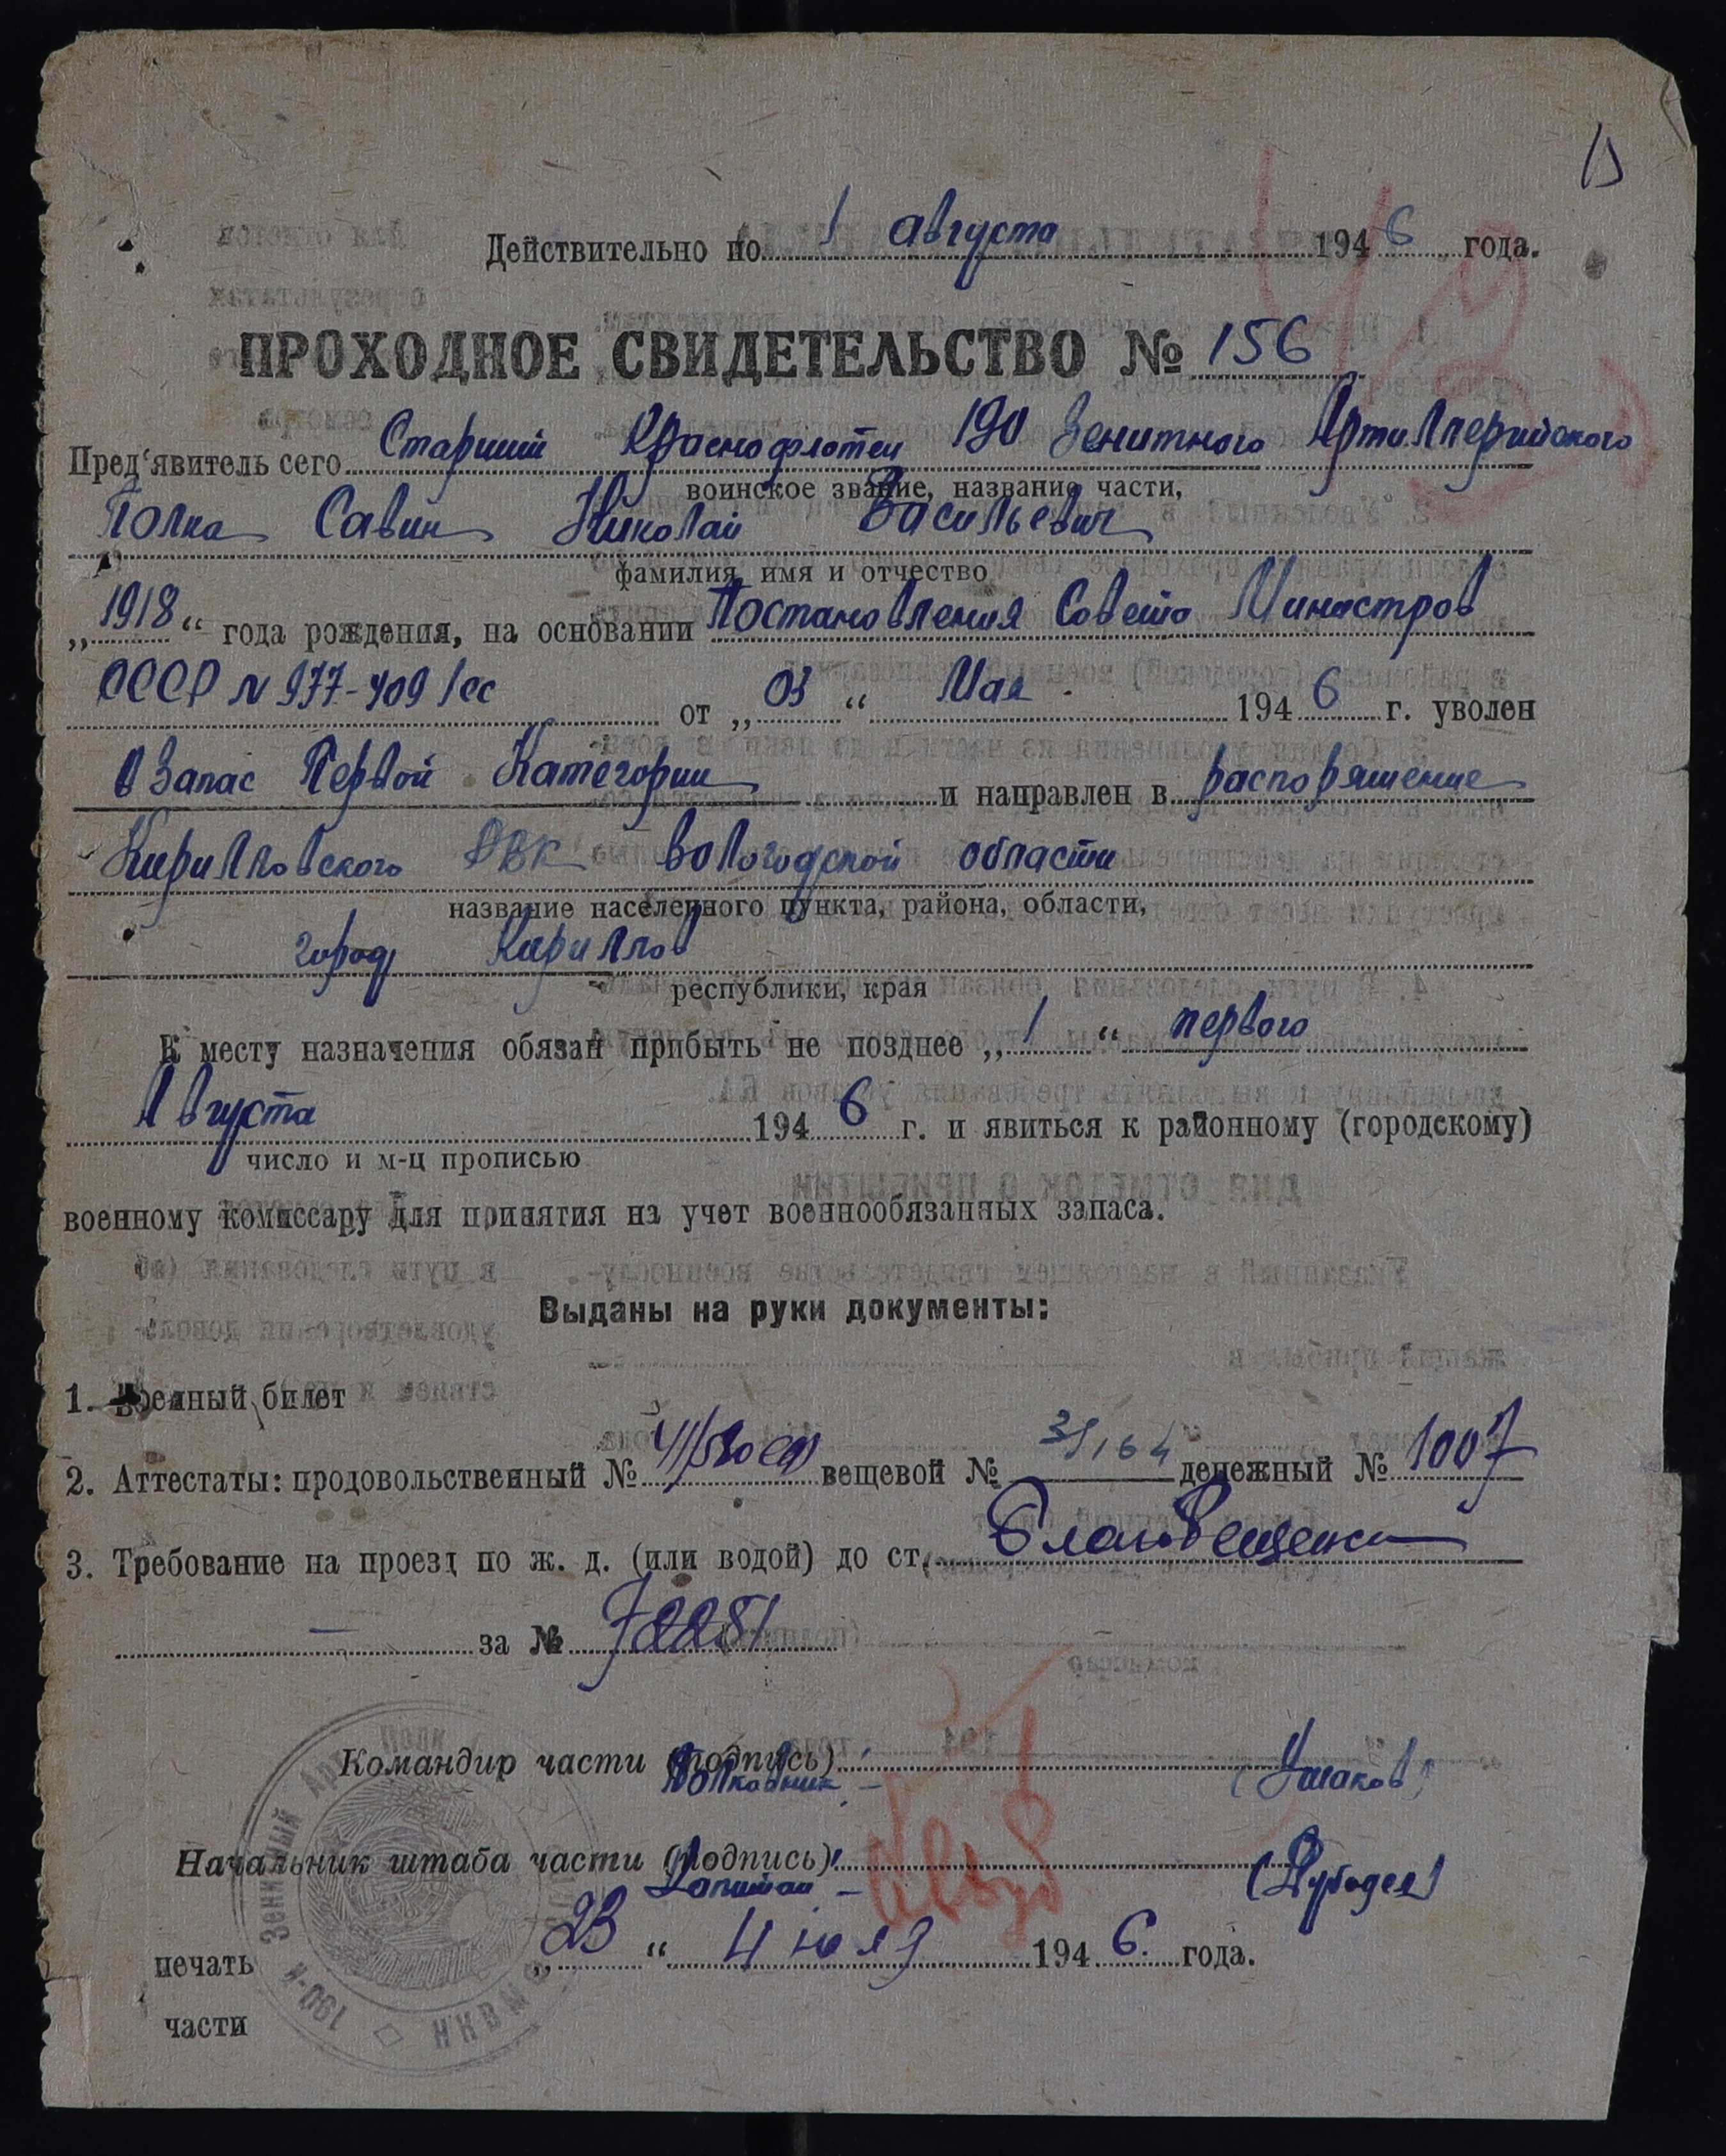 Действительно по 1 августа 1946 года.
ПРОХОДНОЕ СВИДЕТЕЛЬСТВО № 156
Пред'явитель сего Старший Краснофлотец 190 Зенитного Артиллерийского
воинское звание, название части,
Полка Савин Николай Васильевич
фамилия, имя и отчество
„1918“ года рождения, на основании Постановления Совета Министров
СССР N 977-409/сс от „03“ Мая 1946 г. уволен
в запас Первой Категории и направлен в распоряжение
Кирилловского РВК Вологодской области
название населенного пункта, района, области,
город Кириллов
республики, края
К месту назначения обязан прибыть не позднее „1“ первого
Августа 1946 г. и явиться к районному (городскому)
число и м-ц прописью
военному комиссару для принятия на учет военнообязанных запаса.
Выданы на руки документы:
1. Военный билет
2. Аттестаты: продовольственный № вещевой № 31164 денежный № 1007
3. Требование на проезд по ж. д. (или водой) до ст.
— за № 72251
Командир части (подпись)
Полковник – (Ушаков)
Начальник штаба части (подпись)
Капитан –
„23“ Июля 1946. года.
печать
части
190-й Зенитный Арт. Полк